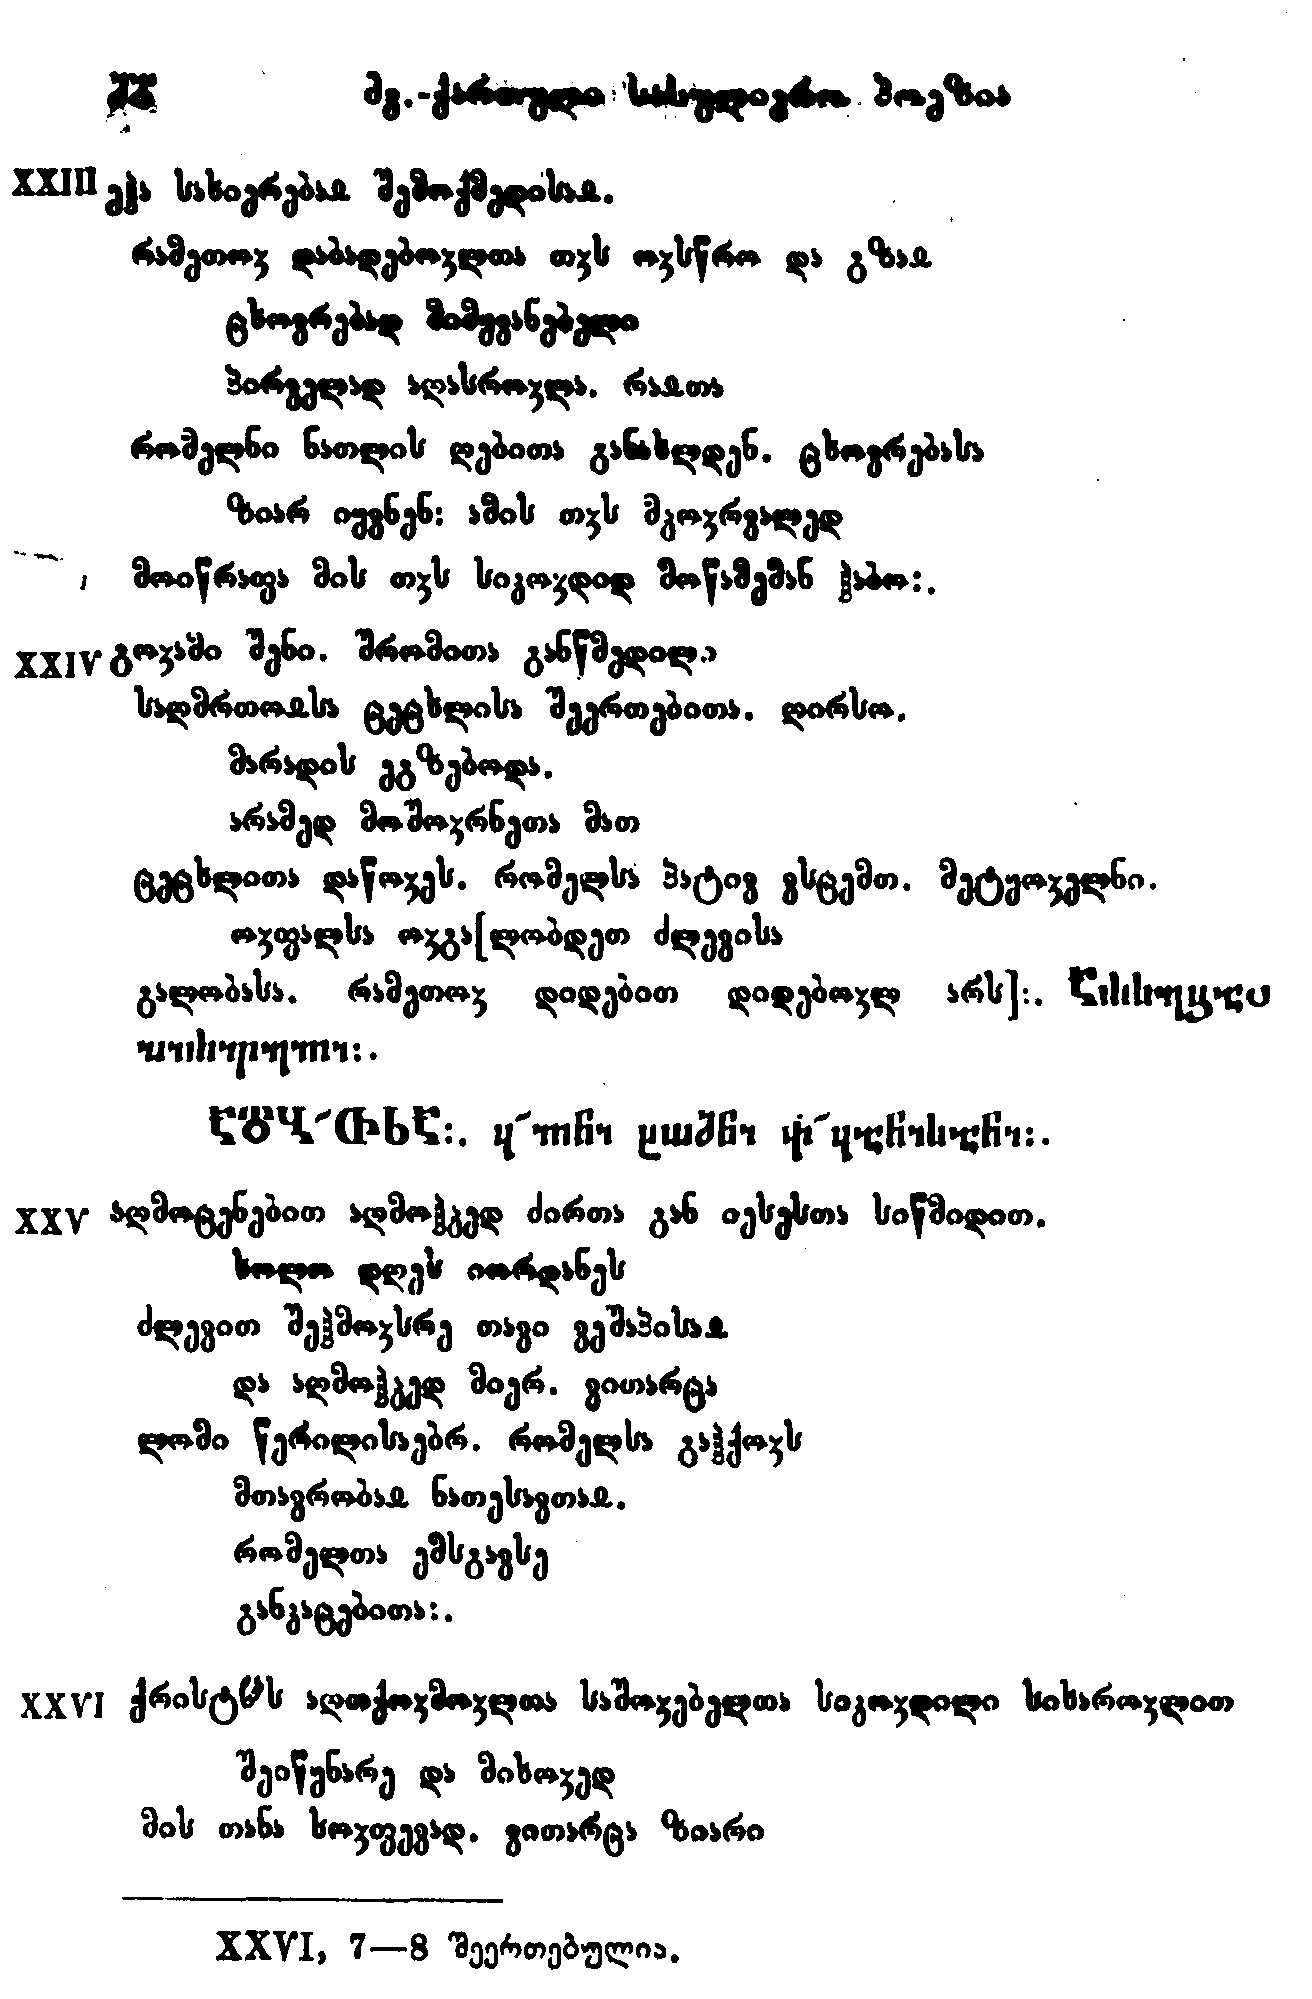 ძვ.-ქართული სასულიერო პოეზია
XXIII ეჰა სახიერებაჲ შემოქმედისაჲ.
რამეთოჳ დაბადებოჳლთა თჳს ოჳსწრო და გზაჲ
ცხოვრებად მიმყვანებელი
პირველად აღასროჳლა. რაჲთა
რომელნი ნათლის ღებითა განახლდენ. ცხოვრებასა
ზიარ იყვნენ: ამის თჳს მკოჳრვალედ
მოიწრაფა მის თჳს სიკოჳდიდ მოწამემან ჰაბო:.
XXIV გოჳამი შენი. შრომითა განწმედილი
საღმრთოჲსა ცეცხლისა შეერთებითა. ღირსო.
მარადის ეგზებოდა.
არამედ მოშოჳრნეთა მათ
ცეცხლითა დაწოჳეს. რომელსა პატივ ვსცემთ. მეტყოჳელნი.
ოჳფალსა ოჳგა[ლობდეთ ძლევისა
გალობასა. რამეთოჳ დიდებით დიდებოჳლ არს]:.
XXV აღმოცენებით აღმოჰკედ ძირთა გან იესესთა სიწმიდით.
ხოლო დღეს იორდანეს
ძლევით შეჰმოჳსრე თავი ვეშაპისაჲ
და აღმოჰკედ მიერ. ვითარცა
ლომი წერილისაებრ. რომელსა გაჰქოჳს
მთავრობაჲ ნათესავთაჲ.
რომელთა ემსგავსე
განკაცებითა:.
XXVI ქრისტჱს აღთქოჳმოჳლთა საშოჳებელთა სიკოჳდილი სიხაროჳლით
შეიწყნარე და მიხოჳედ
მის თანა სოჳფევად. ვითარცა ზიარი
XXVI, 7—8 შეერთებულია.